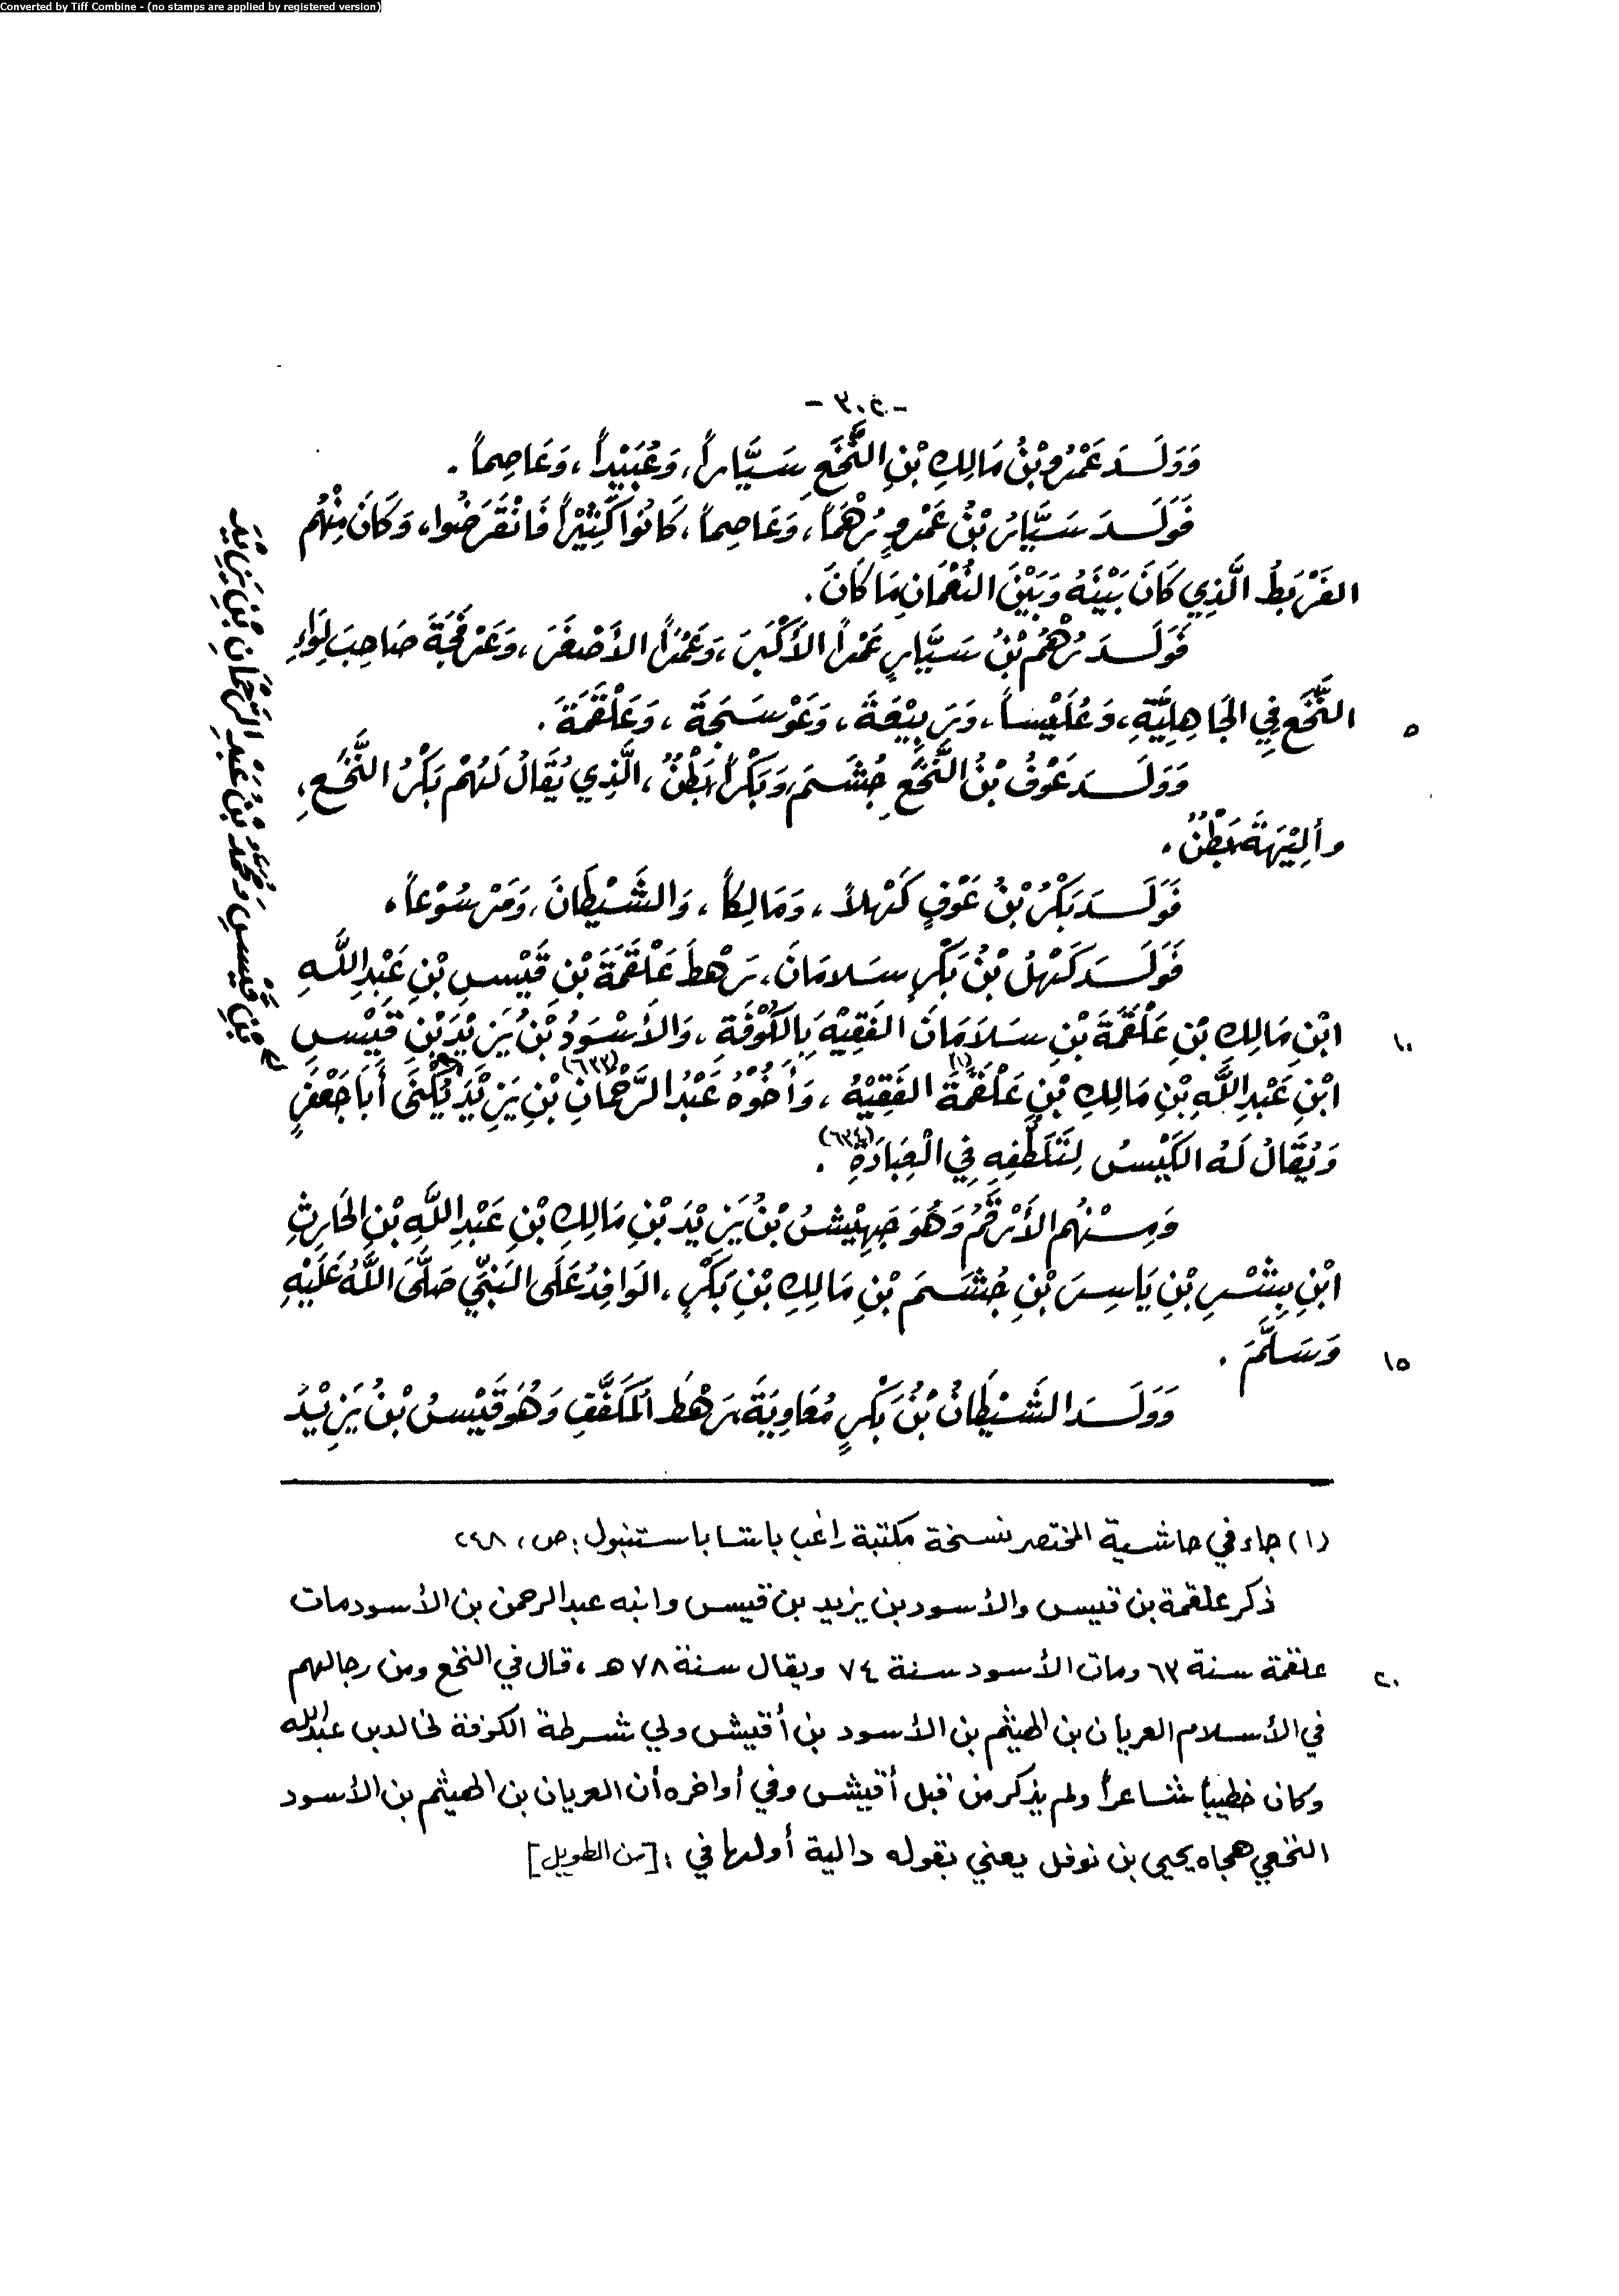 Converted by Tiff Combine - (no stamps are applied by registered version)
- ٣٠٤ -
وَوَلَدَ عَمْرُو بْنُ مَالِكِ بْنِ النَّخَعِ سَيَّاراً، وَعُبَيْداً، وَعَاصِماً .
فَوَلَدَ سَيَّارُ بْنُ عَمْرٍو رُهْماً، وَعَاصِماً، كَانُوا كَثِيْراً فَانْقَرَضُوا، وَكَانَ مِنْهُم
الَّذِي كَانَ بَيْنَهُ وَبَيْنَ النُّعْمَانِ مَا كَانَ.
فَوَلَدَ رُهْمُ بْنُ سَيَّارٍ عَمْراً الأَكْبَرَ، وَعَمْراً الأَصْغَرَ، وَعَرْفَجَةَ صَاحِبَ لِوَاءِ
النَّخَعِ فِي الجَاهِلِيَّةِ، وَعُلَيْساً، وَرَبِيْعَةَ، وَعَوْسَجَةَ، وَعَلْقَمَةَ. ٥
وَوَلَدَ عَوْفُ بْنُ النَّخَعِ جُشَمَ، وَبَكْراً بَطْنٌ، الَّذِي يُقَالُ لَهُمْ بَكْرُ النَّخَعِ،
وأَلِيْهَةَ بَطْنٌ .
فَوَلَدَ بَكْرُ بْنُ عَوْفٍ كَهْلاً، وَمَالِكاً، وَالشَّيْطَانَ، وَمَرْسُوْعاً.
فَوَلَدَ كَهْلُ بْنُ بَكْرٍ سَلامَانَ، رَهْطَ عَلْقَمَةَ بْنِ قَيْسِ بْنِ عَبْدِ اللَّهِ
ابْنِ مَالِكِ بْنِ عَلْقَمَةَ بْنِ سَلَامَانَ الفَقِيْهَ بِالكُوْفَةِ، وَالأَسْوَدُ بْنُ يَزِيْدَ بْنِ قَيْسِ ١٠
ابْنِ عَبْدِ اللَّهِ بْنِ مَالِكِ بْنِ عَلْقَمَةَ (١) الفَقِيْهُ، وَأَخُوْهُ عَبْدُ الرَّحْمَانِ (٦٣٣) بْنِ يَزِيْدَ يُكْنَى أَبَا جَعْفَرٍ
وَيُقَالُ لَهُ الكَيْسُ لِتَلَطُّفِهِ فِي الْعِبَادَةِ (٦٣٤) .
وَمِنْهُم الأَرْقَمُ وَهُوَ جَهِيْشُ بْنُ يَزِيْدَ بْنِ مَالِكِ بْنِ عَبْدِ اللَّهِ بْنِ الحَارِثِ
ابْنِ بِشْرِ بْنِ يَاسِرَ بْنِ جُشَمَ بْنِ مَالِكِ بْنِ بَكْرٍ، الوَافِدُ عَلَى النَّبِيِّ صَلَّى اللَّهُ عَلَيْهِ
وَسَلَّمَ . ١٥
وَوَلَدَ الشَّيْطَانُ بْنُ بَكْرٍ مُعَاوِيَةَ رَهْطَ المُكَفَّفِ وَهُوَ قَيْسُ بْنُ يَزِيْدَ
بْنِ قَيْسِ وَمُحَمَّدُ بْنُ عَبْدِ الرَّحْمَانِ بْنِ يَزِيْدَ
(١) جاء في حاشية المختصر نسخة مكتبة راغب باشا باستنبول : ص، ٢٤٨
ذكر علقمة بن قيس والأسود بن يزيد بن قيس وابنه عبد الرحمن بن الأسود مات
علقمة سنة ٦٣ ومات الأسود سنة ٧٤ ويقال سنة ٧٨ هـ ، قال في النخع ومن رجالهم ٢٠
في الأسلام العريان بن الهيثم بن الأسود بن أقيش ولي شرطة الكوفة لخالد بن عبد الله
وكان خطيباً شاعراً ولم يذكر من قبل أقيش وفي أواخره أن العريان بن الهيثم بن الأسود
النخعي هجاه يحيى بن نوفل يعني بقوله دالية أولها في : [من الطويل]